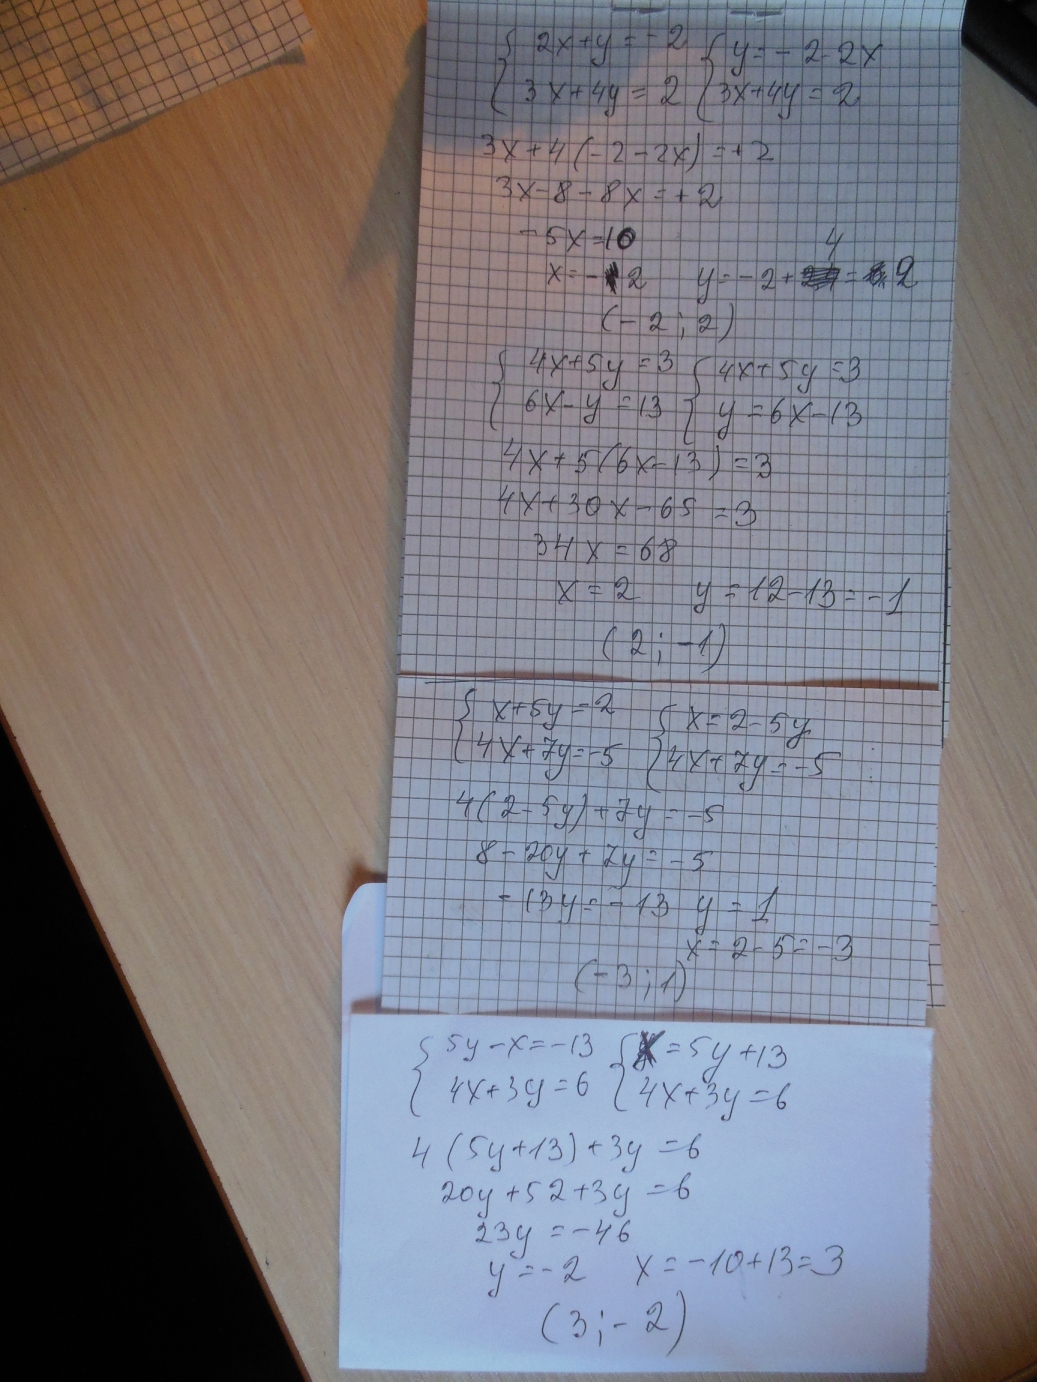 { 2x+y=-2 { y=-2-2x
{ 3x+4y=2 { 3x+4y=2
3x+4(-2-2x)=+2
3x-8-8x=+2
-5x=10
4
x=-2 y=-2+ = 2
(-2;2)
{ 4x+5y=3 { 4x+5y=3
{ 6x-y=13 { y=6x-13
4x+5(6x-13)=3
4x+30x-65=3
34x=68
x=2 y=12-13=-1
(2;-1)
{ x+5y=2 { x=2-5y
{ 4x+7y=-5 { 4x+7y=-5
4(2-5y)+7y=-5
8-20y+7y=-5
-13y=-13 y=1
x=2-5=-3
(-3;1)
{ 5y-x=-13 { x=5y+13
{ 4x+3y=6 { 4x+3y=6
4(5y+13)+3y=6
20y+52+3y=6
23y=-46
y=-2 x=-10+13=3
(3;-2)